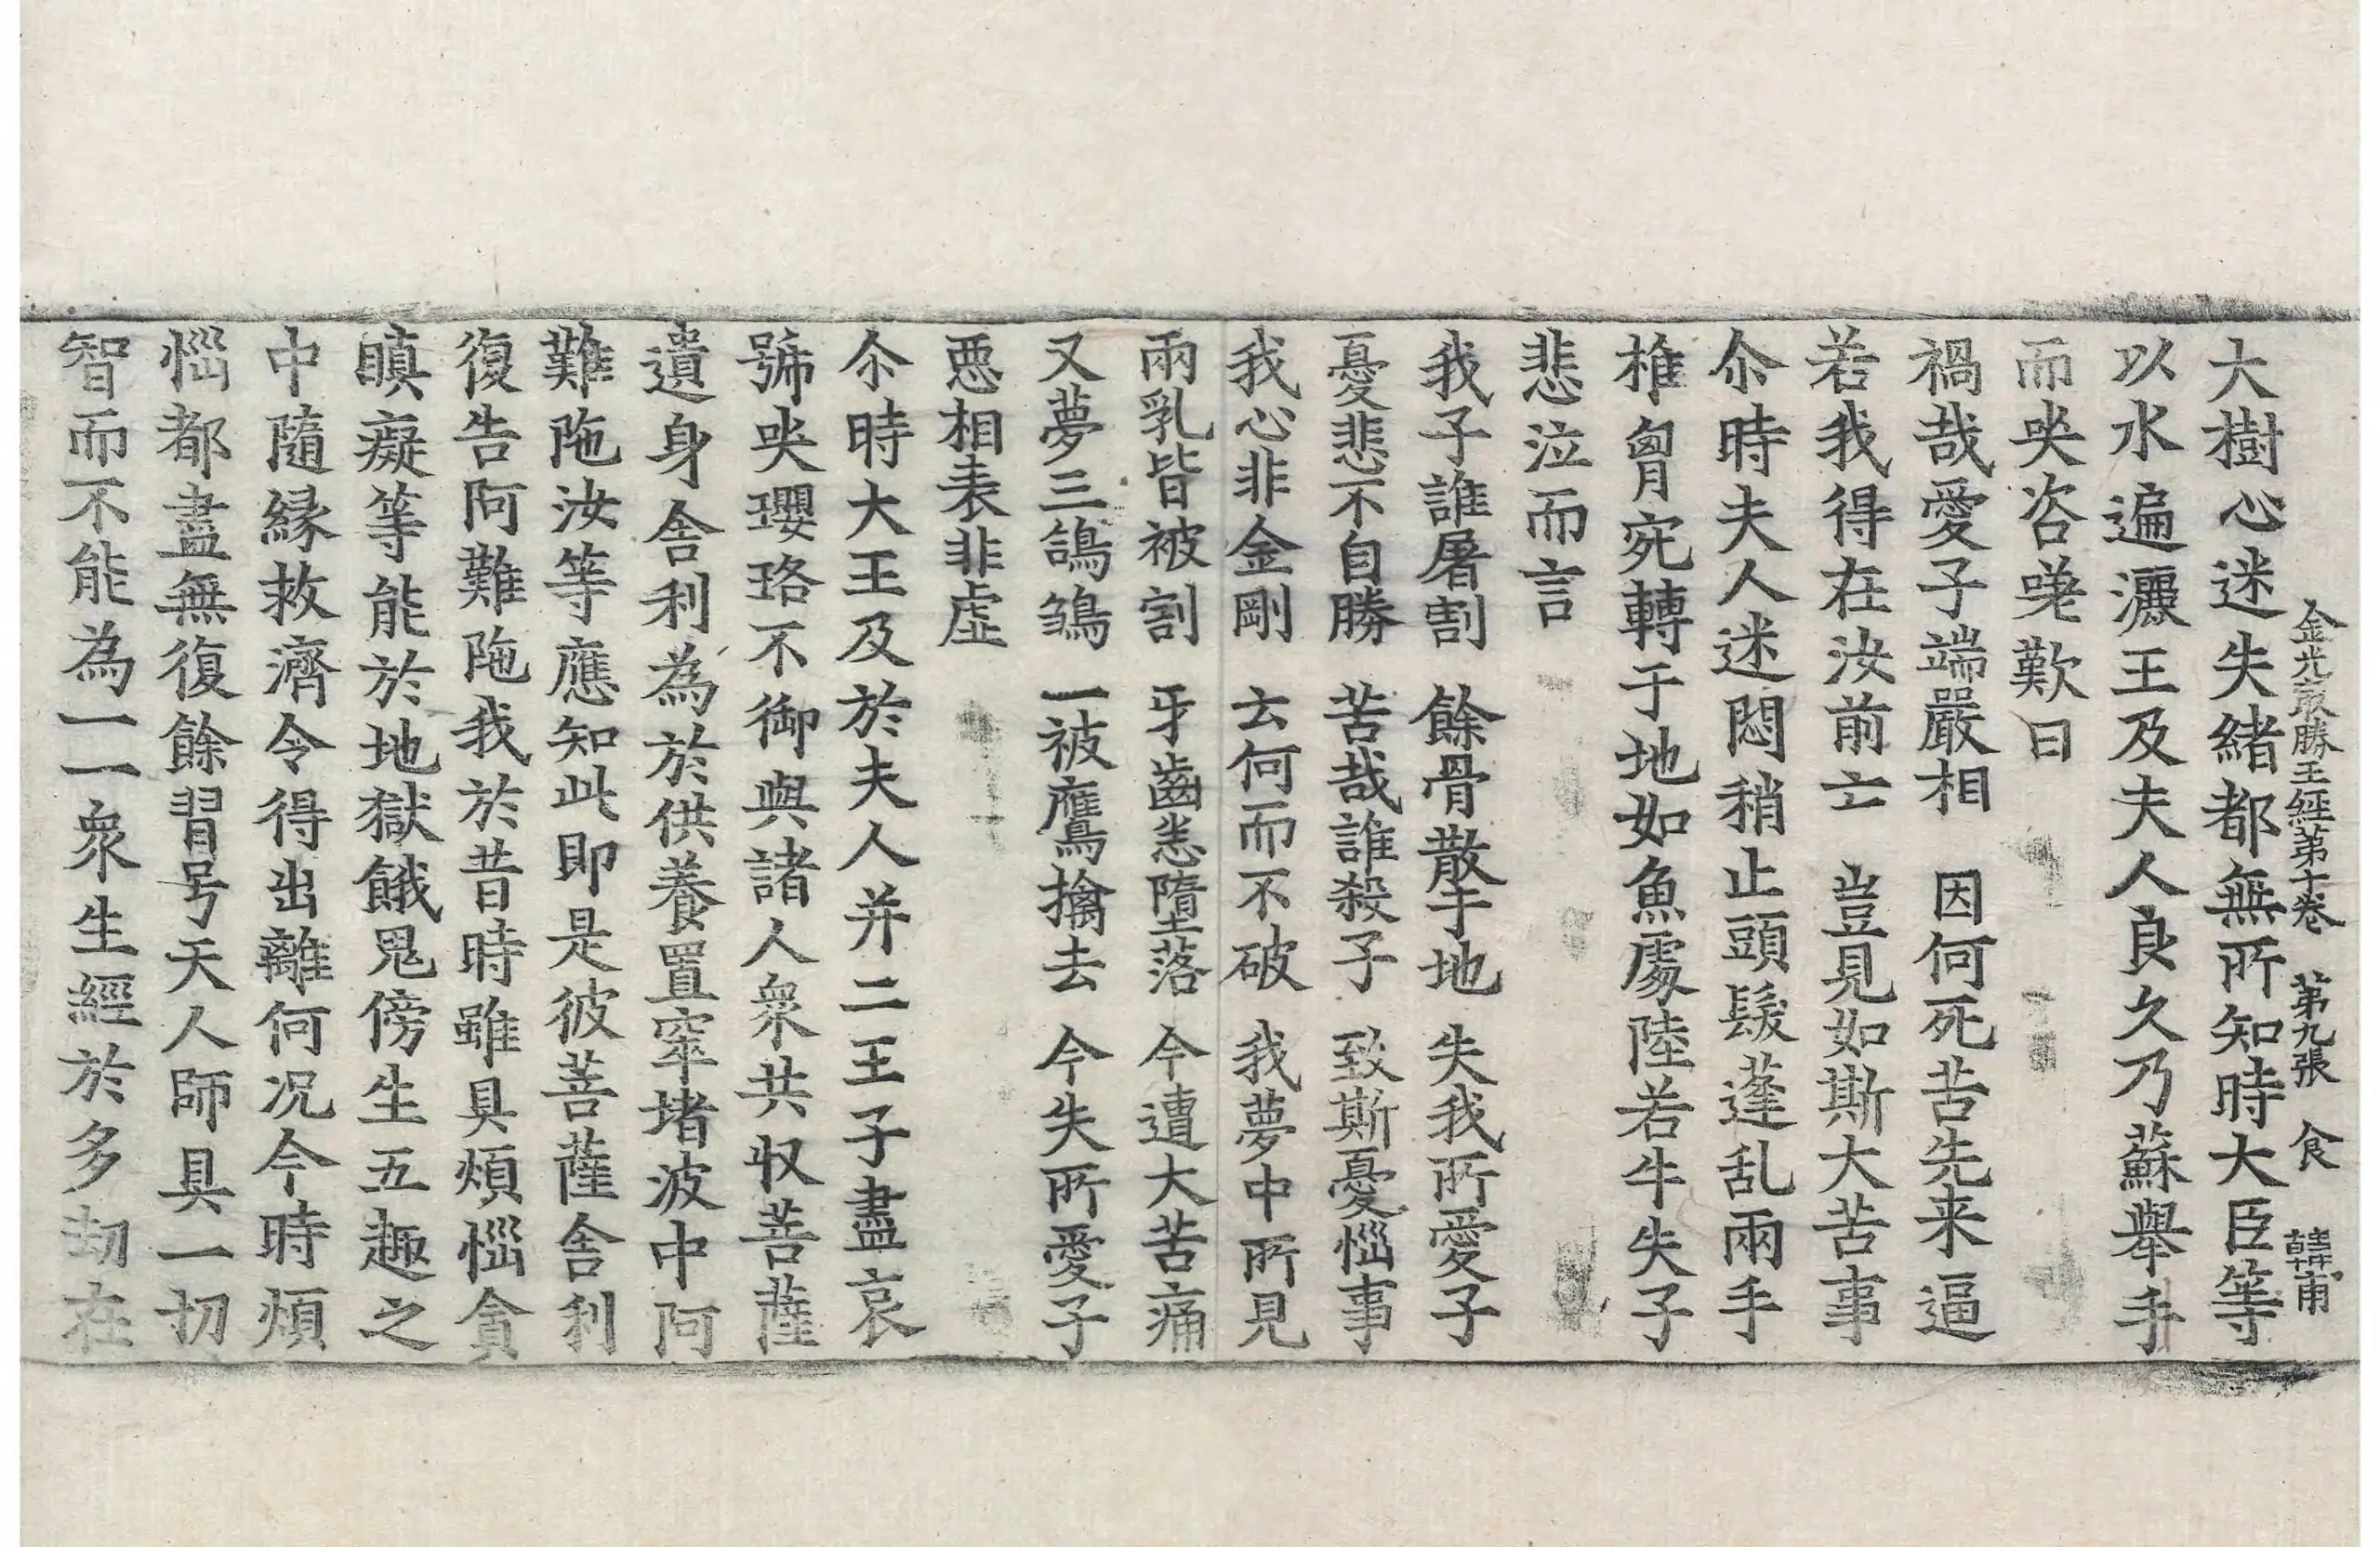 金光㝡勝王經第十卷 第九張 食 韓甫
大樹心迷失緒都無所知時大臣等
以水遍灑王及夫人良久乃蘇舉手
而哭咨嗟歎曰
禍哉愛子端嚴相 因何死苦先来逼
若我得在汝前亡 豈見如斯大苦事
尒時夫人迷悶稍止頭髮蓬乱兩手
椎胷宛轉于地如魚處陸若牛失子
悲泣而言
我子誰屠割 餘骨散于地 失我所愛子
憂悲不自勝 苦哉誰殺子 致斯憂惱事
我心非金剛 云何而不破 我夢中所見
兩乳皆被割 牙齒悉墮落 今遭大苦痛
又夢三鴿鶵 一被鷹擒去 今失所愛子
惡相表非虛
尒時大王及於夫人并二王子盡哀
號哭瓔珞不御與諸人衆共収菩薩
遺身舍利為於供養置窣堵波中阿
難陁汝等應知此即是彼菩薩舍利
復告阿難陁我於昔時雖具煩惱貪
瞋癡等能於地獄餓鬼傍生五趣之
中隨緣救濟令得出離何况今時煩
惱都盡無復餘習号天人師具一切
智而不能為一一衆生經於多劫在